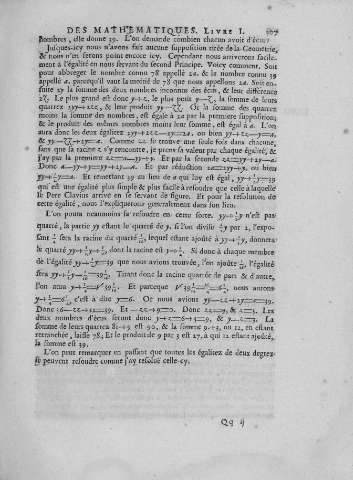 DES MATHEMATIQUES. LIVRE I.
nombres, elle donne 39. L'on demande combien chacun avoit d'écus?
Jusques-icy nous n'avons fait aucune supposition tirée de la Geometrie,
& nous n'en ferons point encore icy. Cependant nous arriverons facile-
ment à l'égalité en nous servant du second Principe. Voicy comment. Soit
pour abbreger le nombre 78 appellé 2a, & la nombre connu 39
appellé a, parcequ'il vaut la moitié de 78 que nous appellons 2a. Soit en-
suite 2y la somme des deux nombres inconnus des écus, & leur difference
2z. Le plus grand est donc y+z, le plus petit y—z, la somme de leurs
quarrez 2yy+2zz, & leur produit yy—zz. Or la somme des quarrez
moins la somme des nombres, est égale à 2a par la premiere supposition;
& le produit des mêmes nombres moins leur somme, est égal à a. L'on
aura donc les deux égalitez 2yy+2zz—2y=2a, ou bien yy+zz—y=a,
& yy—zz+2y=a. Comme zz se trouve une seule fois dans chacune,
sans que la racine z s'y rencontre, je prens sa valeur par chaque égalité, &
j'ay par la premiere zz=a—yy+y. Et par la seconde zz=yy+2y—a.
Donc a—yy+y=yy+2y—a. Et par réduction 2a=2yy+y, ou bien
yy+½y=a. Et remettant 39 au lieu de a qui luy est égal, yy+½y=39
qui est une égalité plus simple & plus facile à resoudre que celle à laquelle
le Pere Clavius arrive en se servant de figure. Et pour la resolution de
cette égalité, nous l'expliquerons generalement dans son lieu.
L'on poura neanmoins la resoudre en cette sorte. yy+½y n'est pas
quarré, la partie yy estant le quarré de y, si l'on divise ½y par 2, l'expo-
sant ¼ sera la racine du quarré 1/16, lequel estant ajoûté à yy+½y, donnera
le quarré yy+½y+1/16, dont la racine est y+¼. Si donc à chaque membre
de l'égalité yy+½y=39 que nous avions trouvée, l'on ajoûte 1/16, l'égalité
sera yy+½y+1/16=39 1/16. Tirant donc la racine quarrée de part & d'autre,
l'on aura y+¼=√39 1/16. Et parceque √39 1/16=6¼, nous aurons
y+¼=6¼, c'est à dire y=6. Or nous avions yy—zz+2y=39.
Donc 36—zz+12=39. Et —zz+9=0. Donc zz=9, & z=3. Les
deux nombres d'écus seront donc y+z=6+3=9, & y—z=3. La
somme de leurs quarrez 81+9 est 90, & la somme 9+3, ou 12, en estant
retranchée, laisse 78; Et le produit de 9 par 3 est 27, à qui 12 estant ajoûté,
la somme est 39.
L'on peut remarquer en passant que toutes les égalitez de deux degrez
se peuvent resoudre comme j'ay resolu celle-cy.
Qq ij